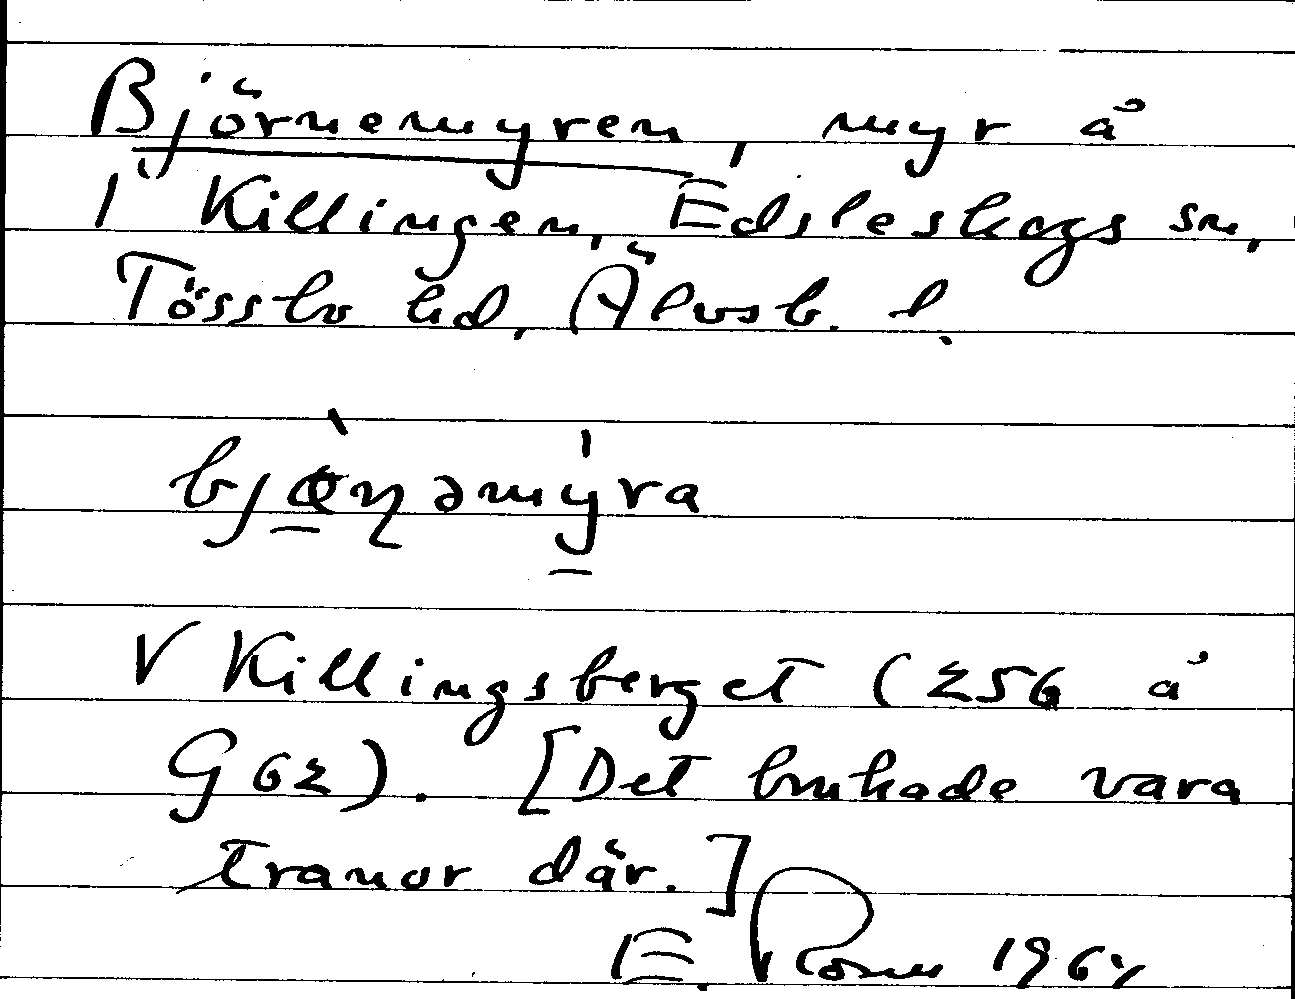 Björnemyren, myr å
1 Killingen, Edsleskogs sn,
Tössbo hd, Älvsb. l.
bjø̀ɳəmýra
V Killingsberget (256 å
G62). [Det brukade vara
tranor där.]
E. 1964